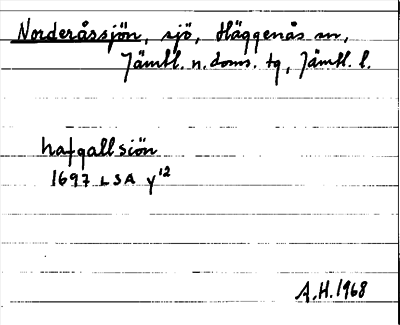 Norderåssjön, sjö, Häggenås sn,
Jämtl. n. doms. tg, Jämtl. l.
hafgallsiön
1697 LSA y12
A.H. 1968